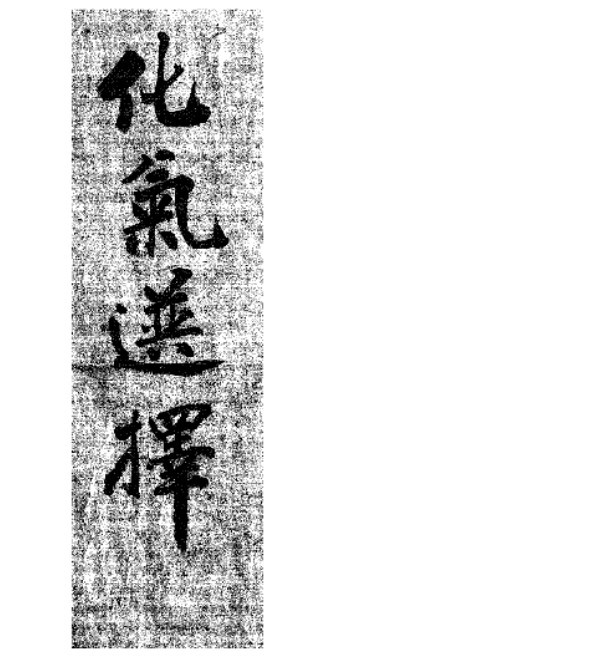 化氣選擇